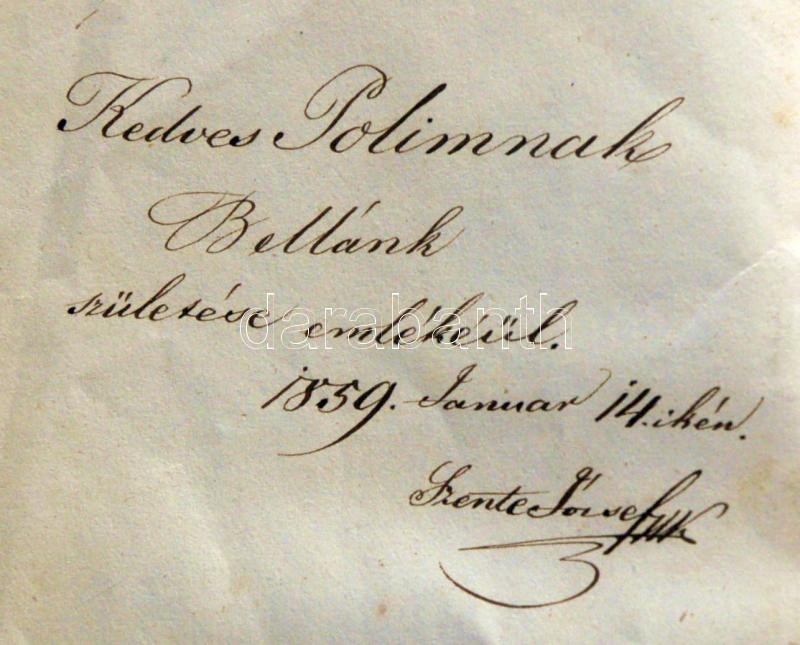 Kedves Polimnak
Bellánk
születése emlékeül.
darabanth
1859. Januar 14.ikén.
Szente József mk